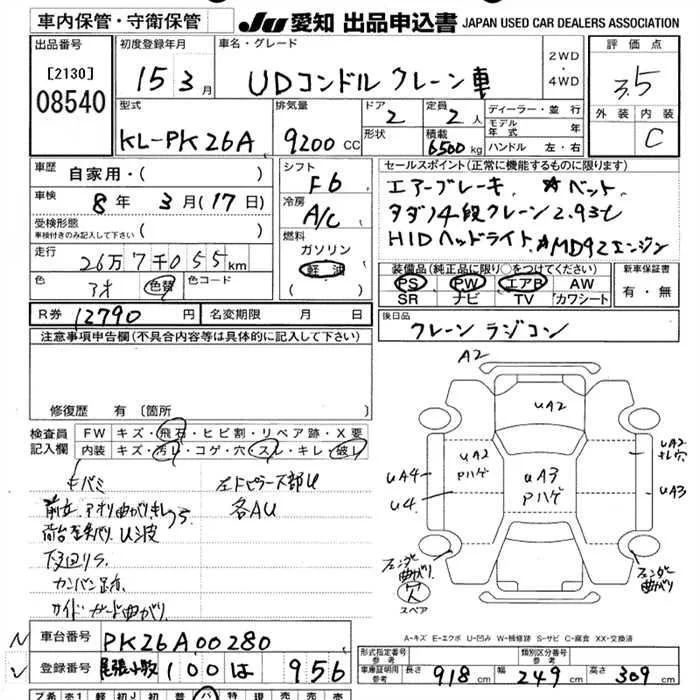 車内保管・守衛保管
JU 愛知 出品申込書 JAPAN USED CAR DEALERS ASSOCIATION
出品番号 初度登録年月 車名・グレード 2WD・4WD 評価点
[2130] 08540 15 3月 UDコンドル クレーン車 3.5
型式 排気量 ドア 2 定員 2人 ディーラー・並行 外装 内装
KL-PK26A 9200 CC 形状 積載 6500kg モデル年式 年 C
ハンドル 左・右
車歴 自家用・( ) シフト F6 セールスポイント(正常に機能するものに限ります)
車検 8年 3月(17日) 冷房 A/C エアーブレーキ、☆ベット、
受検形態 車検付きのみ記入して下さい ( ) 燃料 タダノ4段クレーン2.93t
走行 26万7千055km ガソリン HIDヘッドライト、☆MD92エンジン
色 アオ 色替 色コード 軽油 ( )
装備品(純正品に限り○をつけてください) 新車保証書
PS PW エアB AW 有・無
SR ナビ TV カワシート
R券 12790円 名変期限 月 日 後日品
クレーン ラジコン
注意事項申告欄(不具合内容等は具体的に記入して下さい)
修復歴 有 〔箇所
検査員記入欄 FW キズ・飛石・ヒビ割・リペア跡・X要
内装 キズ・汚レ・コゲ・穴・スレ・キレ・破レ
キバミ
各AU
下回りサ
カンバン跡有
サイドガード曲がり
A2
UA2
UA2 Pハゲ
UA3 Pハゲ
UA4
U4
UA2
UA3
フェンダー曲がり
フェンダー曲がり
穴
スペア
A-キズ E-エクボ U-凹み W-補修跡 S-サビ C-腐食 XX-交換済
車台番号 PK26A00280
登録番号 尾張小牧 100 は 956
形式指定番号 参考 類別区分番号 参考
車庫証明用 参考 長さ 918cm 幅 249cm 高さ 309cm